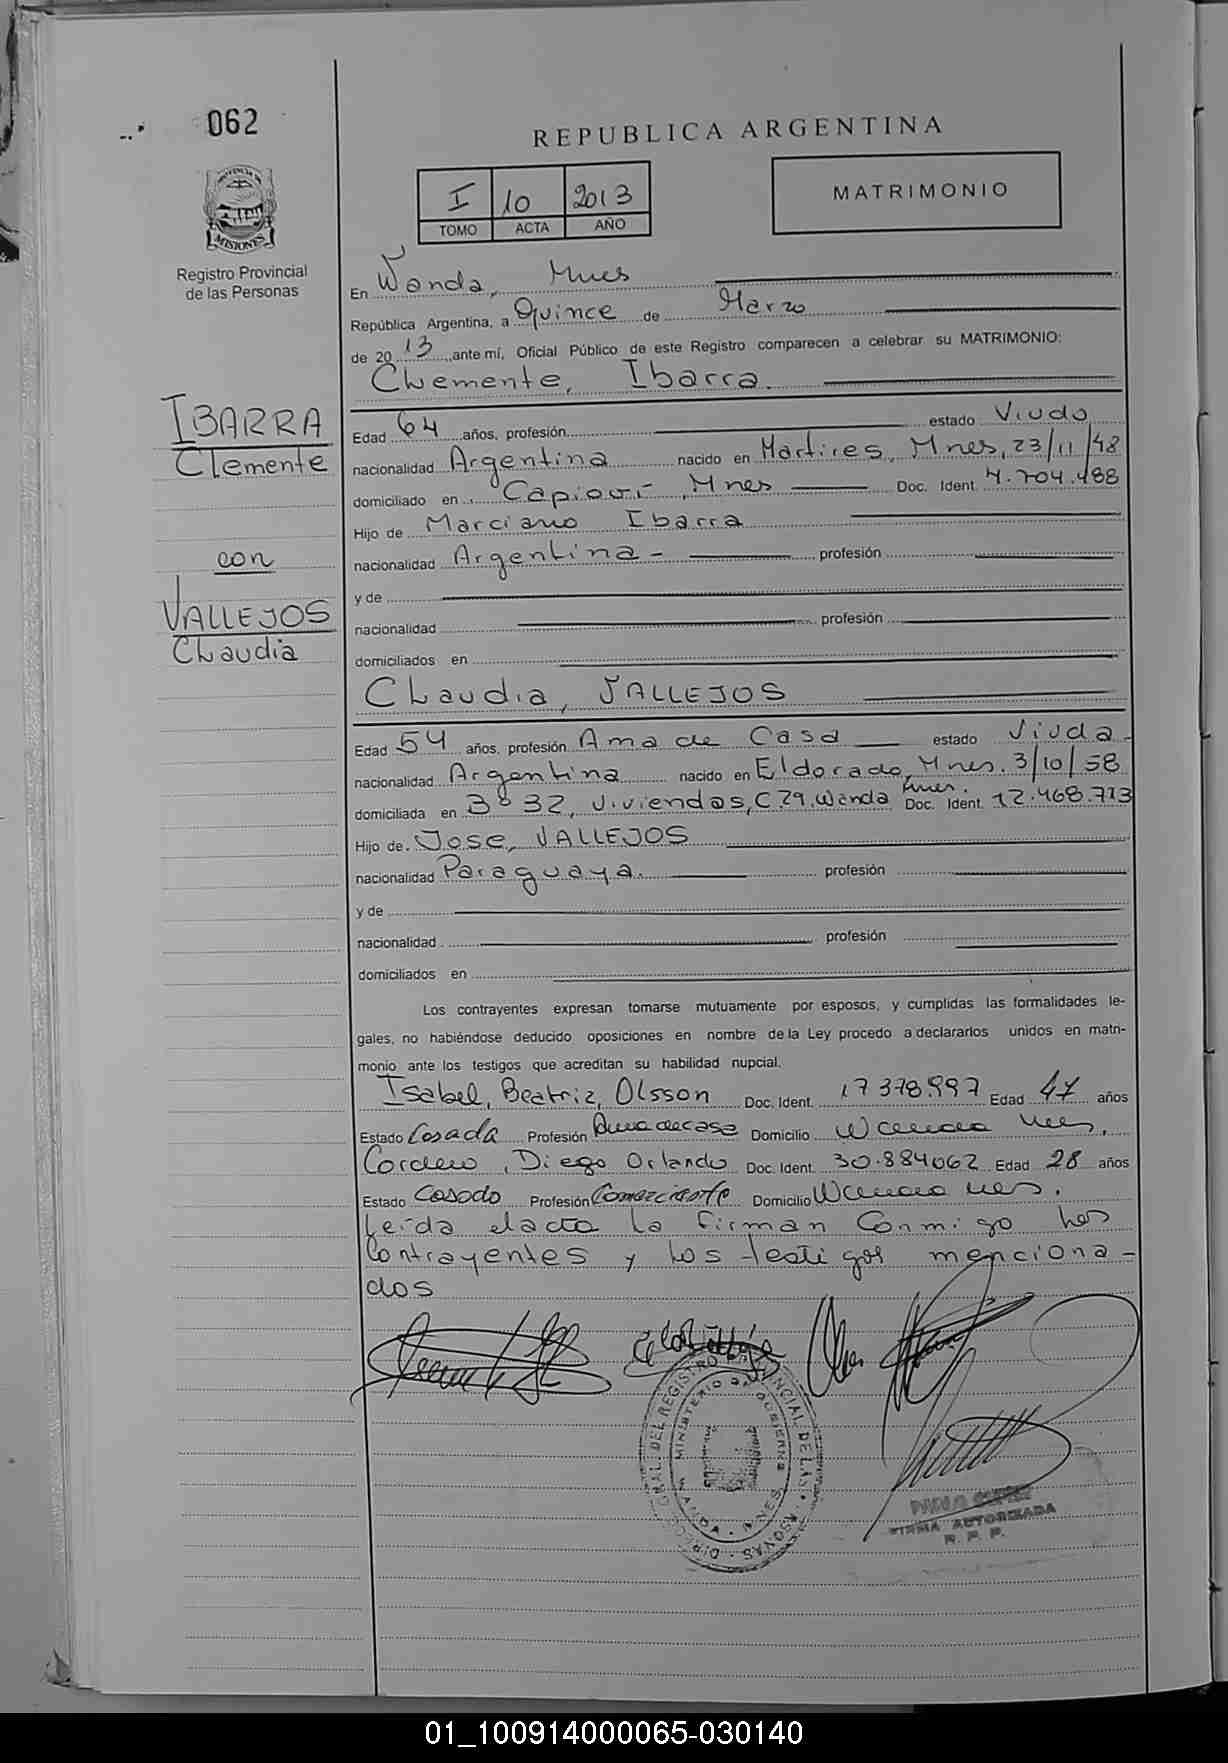 062
REPUBLICA ARGENTINA
I 10 2013
TOMO ACTA AÑO
MATRIMONIO
PROVINCIA DE
MISIONES
Registro Provincial
de las Personas
En Wanda, Mnes
República Argentina, a Quince de Marzo
de 20 13 ante mí, Oficial Público de este Registro comparecen a celebrar su MATRIMONIO:
Clemente, Ibarra.
IBARRA
Clemente
con
VALLEJOS
Claudia
Edad 64 años, profesión estado Viudo
nacionalidad Argentina nacido en Martires, Mnes, 23/11/48
domiciliado en Capiovi, Mnes Doc. Ident. 7.704.488
Hijo de Marciano Ibarra
nacionalidad Argentina - profesión
y de
nacionalidad profesión
domiciliados en
Claudia, VALLEJOS
Edad 54 años, profesión Ama de Casa estado Viuda -
nacionalidad Argentina nacido en Eldorado, Mnes. 3/10/58
domiciliada en Bº 32, Viviendas, C 29. Wanda Mnes. Doc. Ident. 12.468.713
Hijo de. Jose, VALLEJOS
nacionalidad Paraguaya. profesión
y de
nacionalidad profesión
domiciliados en
Los contrayentes expresan tomarse mutuamente por esposos, y cumplidas las formalidades le-
gales, no habiéndose deducido oposiciones en nombre de la Ley procedo a declararlos unidos en matri-
monio ante los testigos que acreditan su habilidad nupcial.
Isabel, Beatriz, Olsson Doc. Ident. 17 378.997 Edad 47 años
Estado Casada Profesión Ama de casa Domicilio Wanda Mnes.
Cordero, Diego Orlando Doc. Ident. 30.884062 Edad 28 años
Estado Casado Profesión Comerciante Domicilio Wanda Mnes.
Leída el acta la firman Conmigo los
Contrayentes y los testigos menciona-
dos
DIREC. GRAL. DEL REGISTRO PROVINCIAL DE LAS PERSONAS
MINISTERIO DE GOBIERNO
WANDA - MNES.
FIRMA AUTORIZADA
R. P. P.
01_100914000065-030140